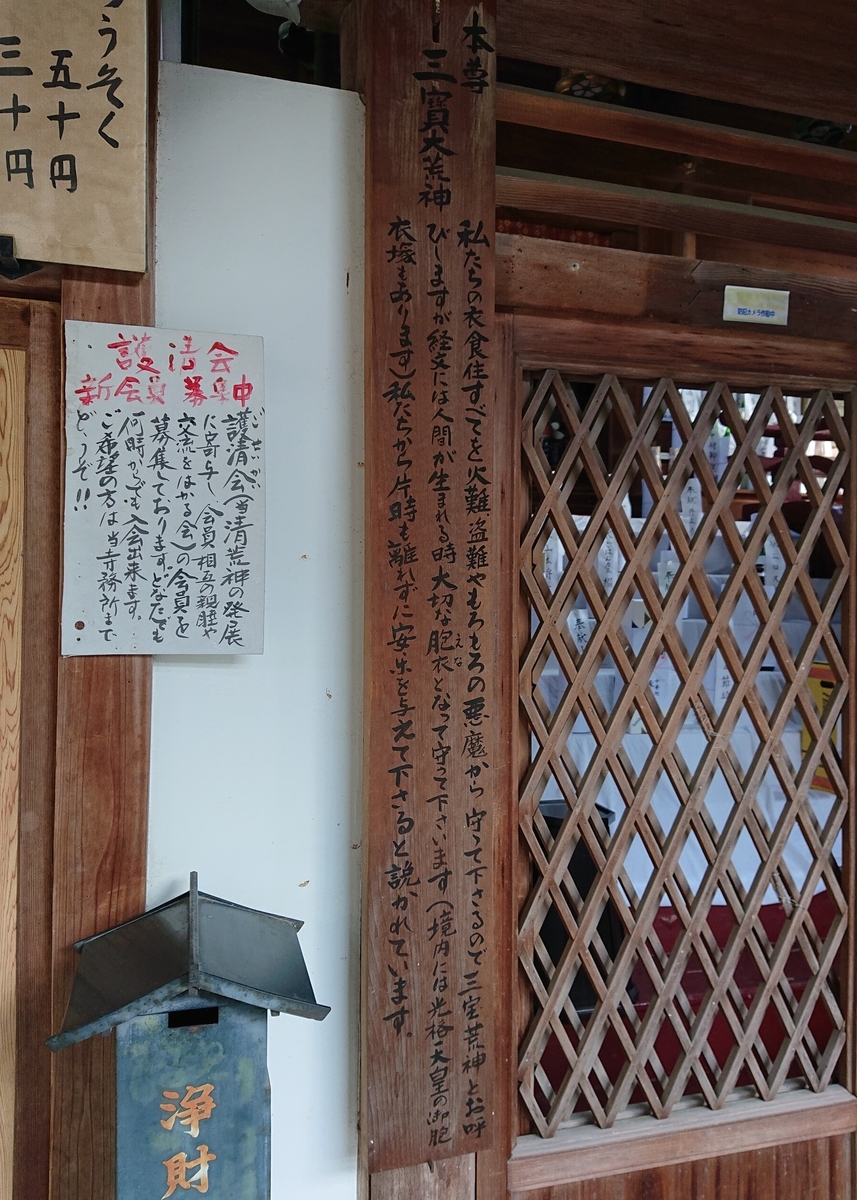 本尊
三寳大荒神
私たちの衣食住すべてを火難盗難やもろもろの悪魔から守って下さるので三宝荒神とお呼
びしますが経文には人間が生まれる時大切な胞衣となって守って下さいます(境内には光格天皇の御胞
えな
衣塚もあります)私たちから片時も離れずに安楽を与えて下さると説かれています。
うそく
五十円
三十円
護清会
新会員募集中
ごせいかい
護清会(当清荒神の発展
に寄与し会員相互の親睦や
交流をはかる会)の会員を
募集しております。どなたでも
何時からでも入会出来ます。
ご希望の方は当寺務所まで
どうぞ!!
浄財
防犯カメラ作動中
奉献